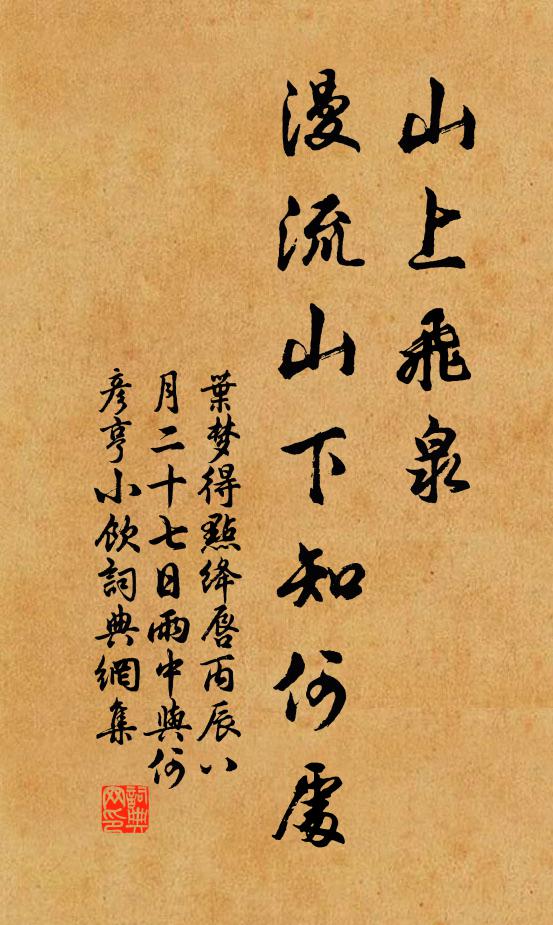 山上飛泉
漫流山下知何處
葉梦得點绛唇丙辰八
月二十七日雨中與何
彥亨小飲詞典網集
詞典
网印